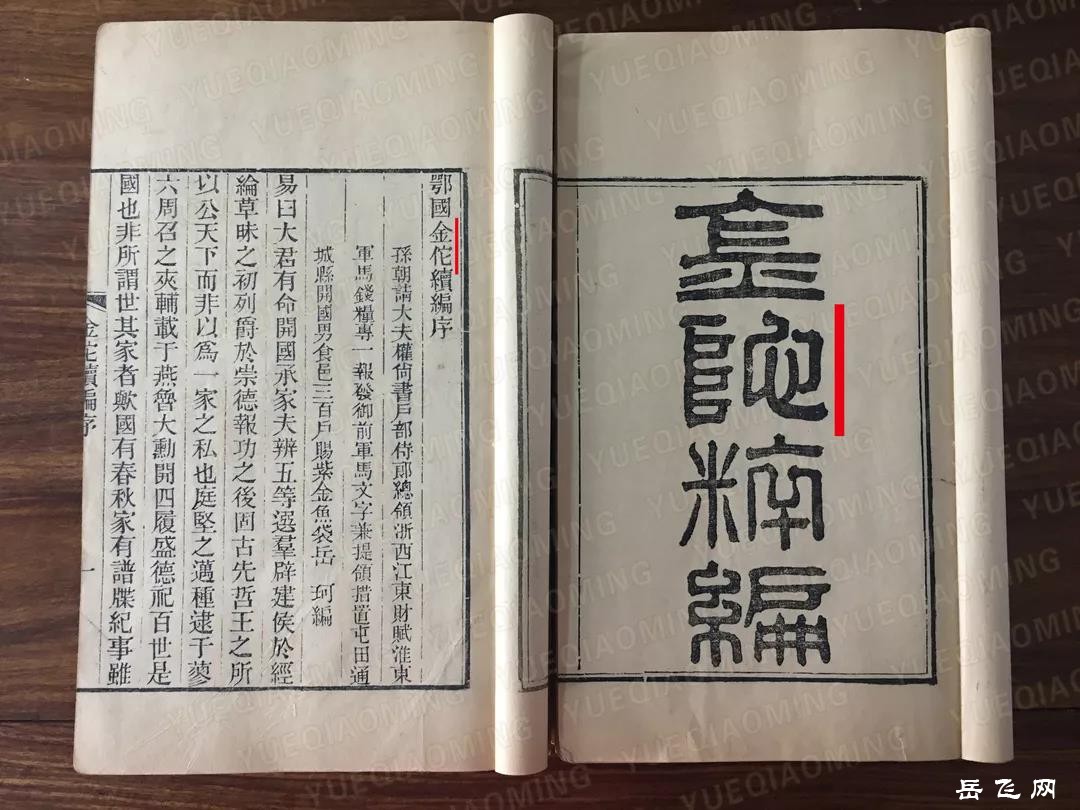 金陀粹編
鄂國金佗續編序
孫朝請大夫權尚書戶部侍郎總領浙西江東財賦淮東
軍馬錢糧專一報發御前軍馬文字兼提領措置屯田通
城縣開國男食邑三百戶賜紫金魚袋岳 珂編
易曰大君有命開國承家夫辨五等選羣辟建侯於經
綸草昧之初列爵於崇德報功之後固古先哲王之所
以公天下而非以爲一家之私也庭堅之邁種逮于蓼
六周召之夾輔載于燕魯大勳開四履盛德祀百世是
國也非所謂世其家者歟國有春秋家有譜牒紀事雖
金佗續編序
一
YUEQIAOMING
岳飞网